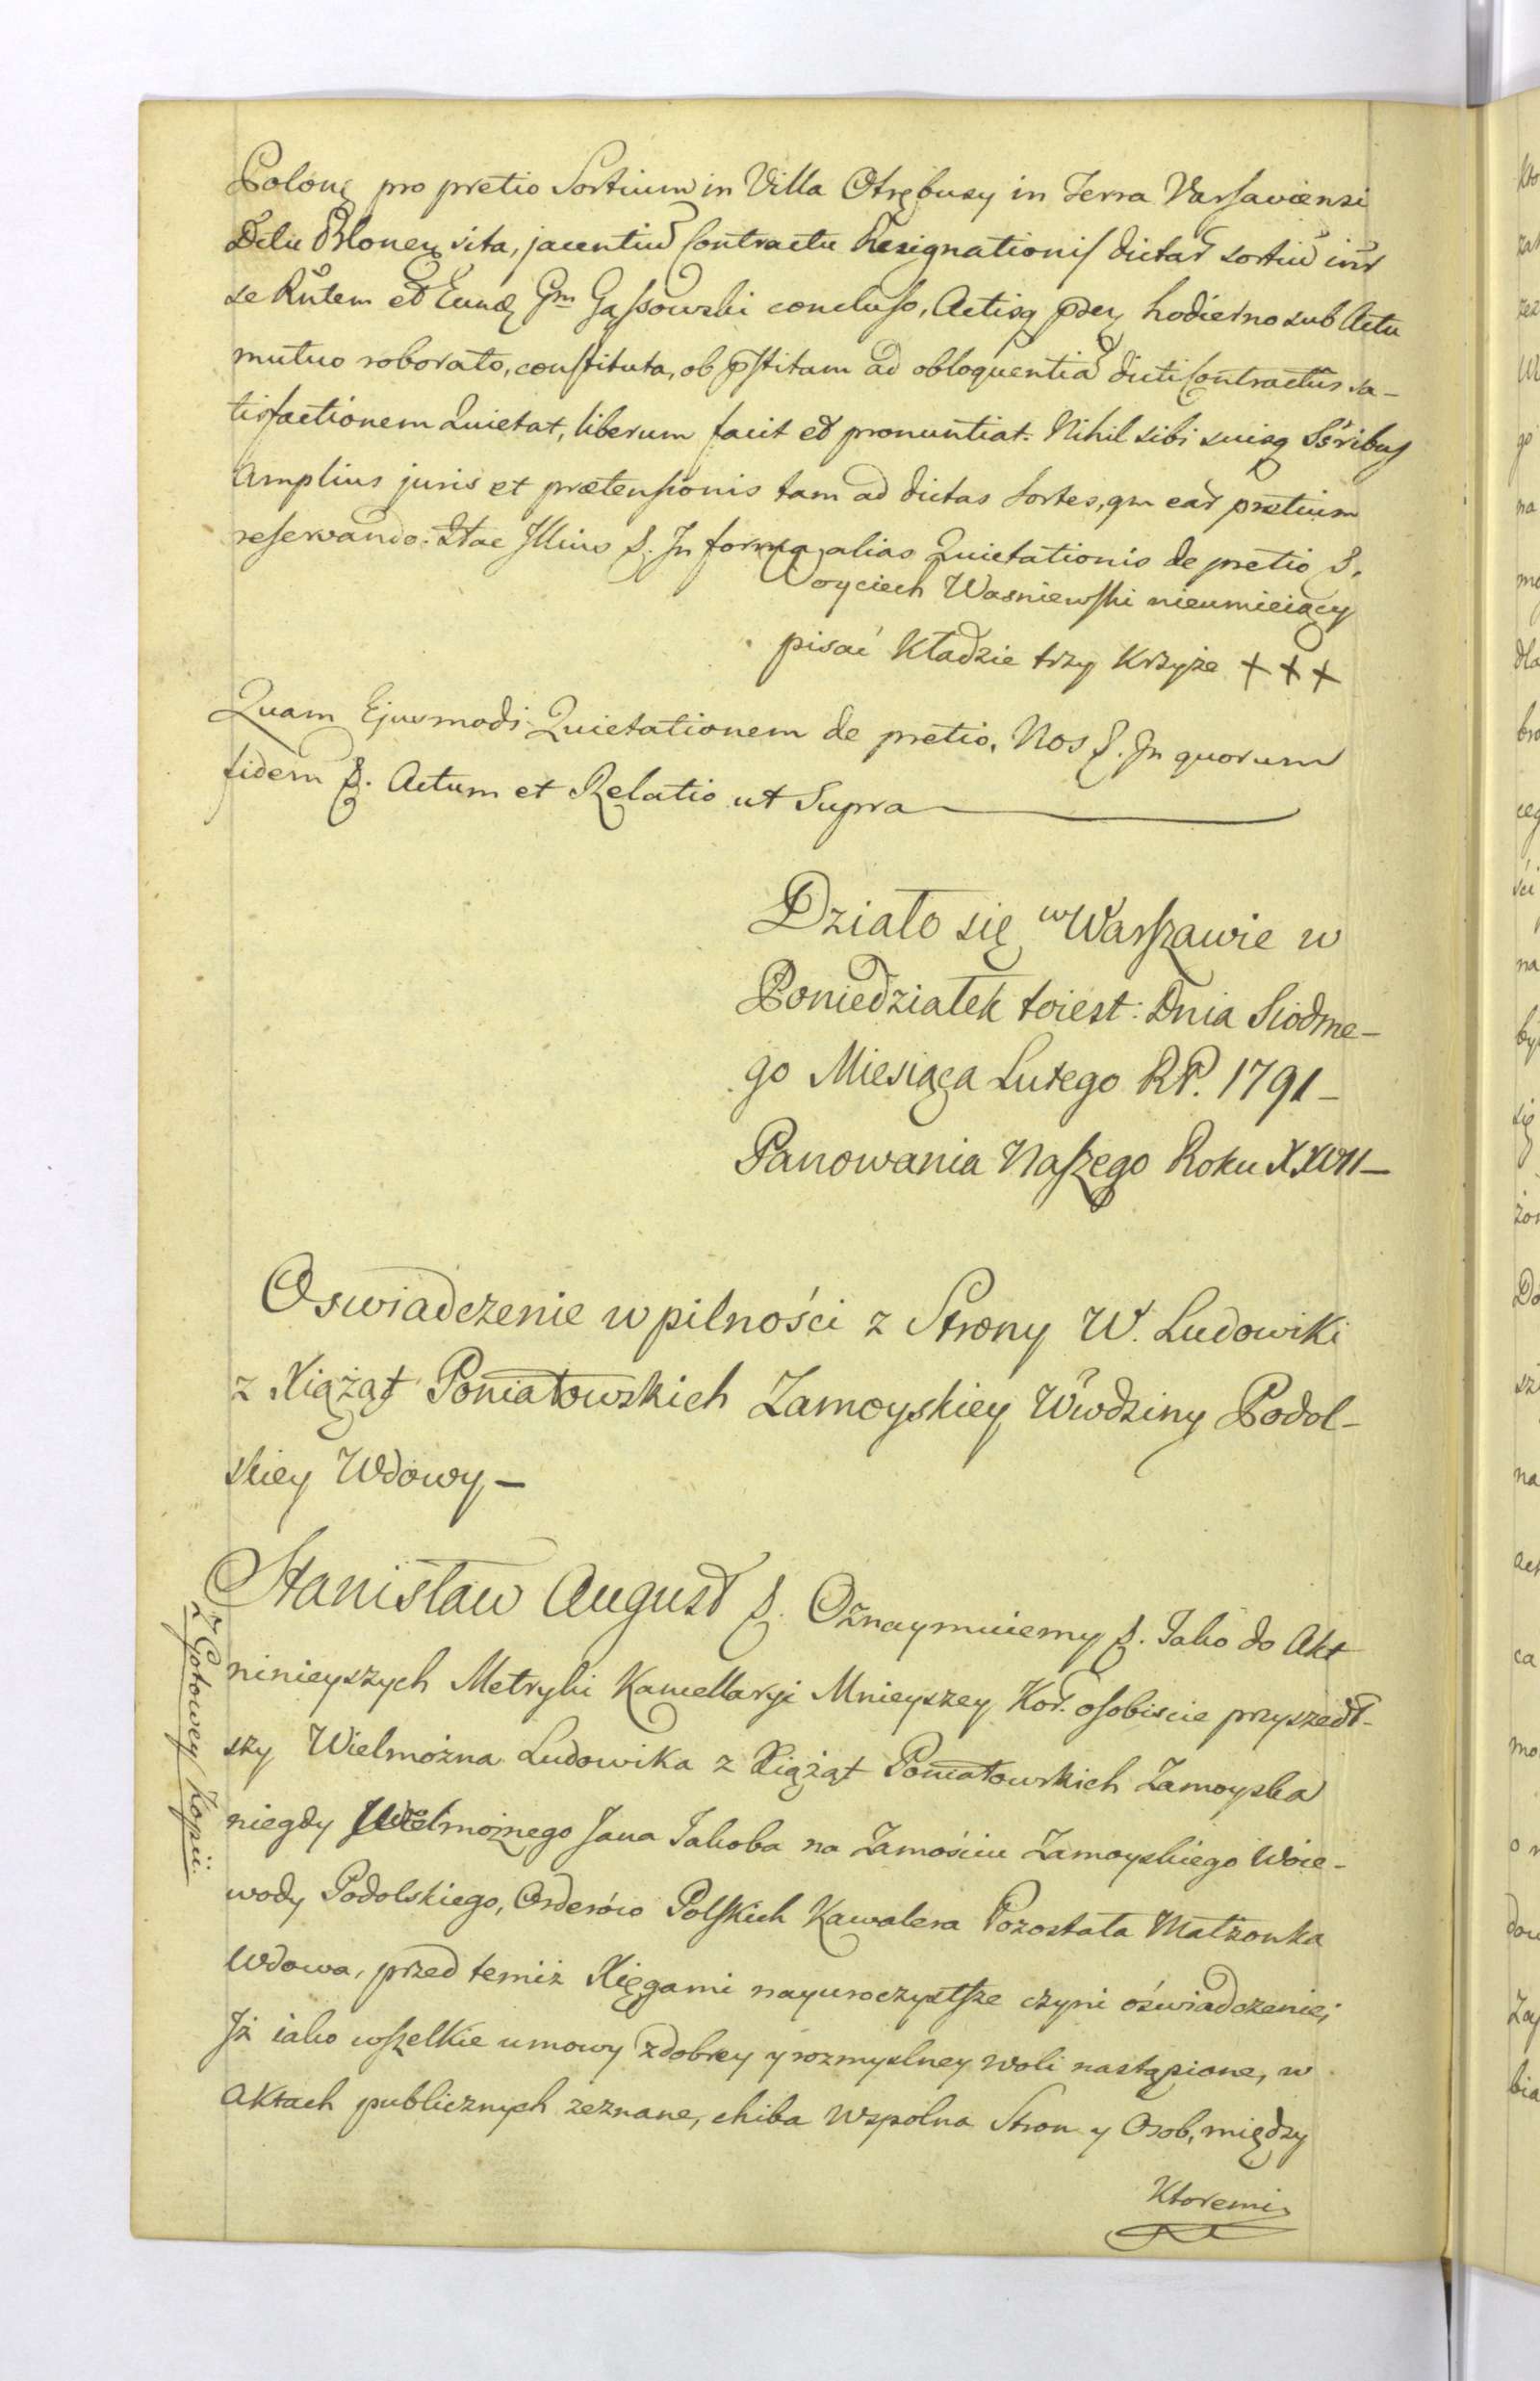 Polonę pro pretio Sortium in Villa Otrębusy in Terra Varsaviensi
Dělu Blonen sita, jacentiu Contractu Resignationis dictar sortiu int
se Rntem et Eund Gm Gąssowski concluso, Actisq pden hodierno sub Actu
mutuo roborato, constituta, ob pstitam ad obloquentia dicti Contractus sa-
tisfactionem Quietat, liberum facit et pronuntiat. Nihil sibi suisq Ssribus
Amplius juris et prætensionis tam ad dictas Sortes, qm ear pretium
reservando. Itae Illius &. In forma alias Quietationis de pretio &.
Woyciech Wasniewski nieumieiący
pisać Kładzie trzy Krzyże + + +
Quam Ejusmodi Quietationem de pretio, Nos &. In quorum
fidem &. Actum et Relatio ut Supra
Działo się w Warszawie w
Poniedziałek toiest: Dnia Siodme-
go Miesiąca Lutego RP. 1791 –
Panowania Naszego Roku XXVII –
Oswiadczenie w pilności z Strony W. Ludowiki
z Xiążąt Poniatowskich Zamoyskiey Wwdziny Podol-
skiey Wdowy –
Stanisław August &. Oznaymuiemy &. Iako do Akt
ninieyszych Metryki Kancellaryi Mnieyszey Kor. osobiscie przyszedł-
szy Wielmożna Ludowika z Xiążąt Poniatowskich Zamoyska
niegdy Wielmożnego Jana Jakoba na Zamościu Zamoyskiego Woie-
wody Podolskiego, Orderów Polskich Kawalera Pozostała Małżonka
Wdowa, przed temiż Xięgami nayuroczystsze czyni oświadczenie;
Jż iako wszelkie umowy z dobrey y rozmyslney woli nastąpione, w
Aktach publicznych zeznane, chiba Wspólna Stron y Osob, między
Ktoremi
Z Gotowey Kopii.